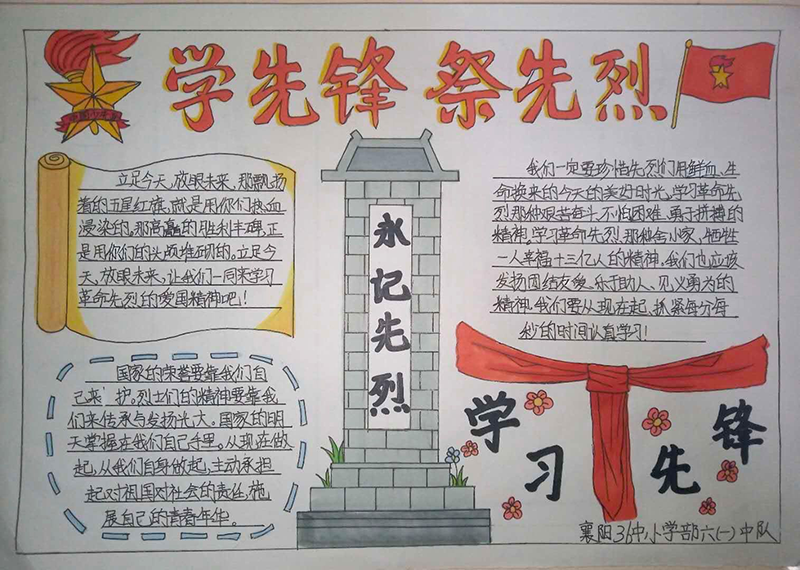 学先锋 祭先烈
立足今天,放眼未来,那飘扬
着的五星红旗,就是用你们热血
浸染的。那高高的胜利丰碑,正
是用你们的头颅堆砌的。立足今
天,放眼未来,让我们一同来学习
革命先烈的爱国精神吧!
国家的荣誉要靠我们自
己来护。烈士们的精神要靠我
们来传承与发扬光大。国家的明
天掌握在我们自己手里。从现在做
起,从我们自身做起,主动承担
起对祖国对社会的责任,施
展自己的青春年华。
永记先烈
我们一定要珍惜先烈们用鲜血、生
命换来的今天的美好时光,学习革命先
烈那种艰苦奋斗、不怕困难、勇于拼搏的
精神。学习革命先烈,那种舍小家,牺牲
一人幸福十三亿人的精神。我们也应该
发扬团结友爱、乐于助人、见义勇为的
精神。我们要从现在起,抓紧每分每
秒的时间认真学习!
学习先锋
襄阳36中小学部六(一)中队